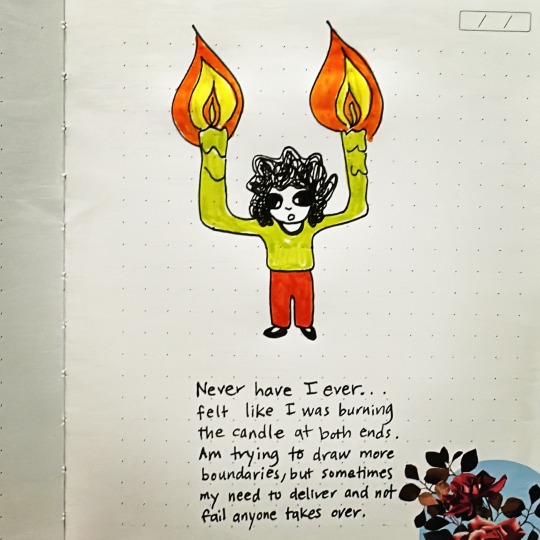 Never have I ever...
felt like I was burning
the candle at both ends.
Am trying to draw more
boundaries, but sometimes
my need to deliver and not
fail anyone takes over.